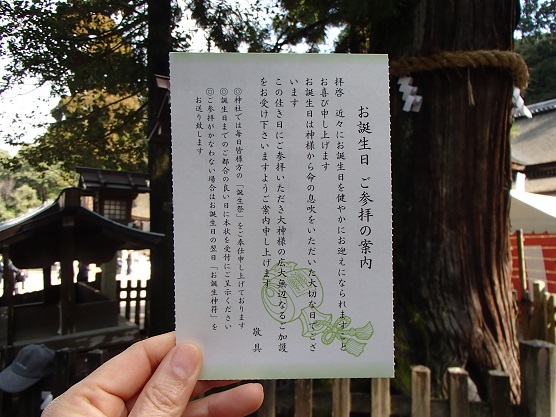 お誕生日 ご参拝の案内
拝啓 近々にお誕生日を健やかにお迎えになられますこと
お喜び申し上げます
お誕生日は神様から命の息吹をいただいた大切な日でござ
います
この佳き日にご参拝いただき大神様の広大無辺なるご加護
をお受け下さいますようご案内申し上げます
敬具
◎神社では毎日皆様方の「誕生祭」をご奉仕申し上げております
◎誕生日までのご都合の良い日に本状を受付にご呈示ください
◎ご参拝がかなわない場合はお誕生日の翌日「お誕生神符」を
お送り致します